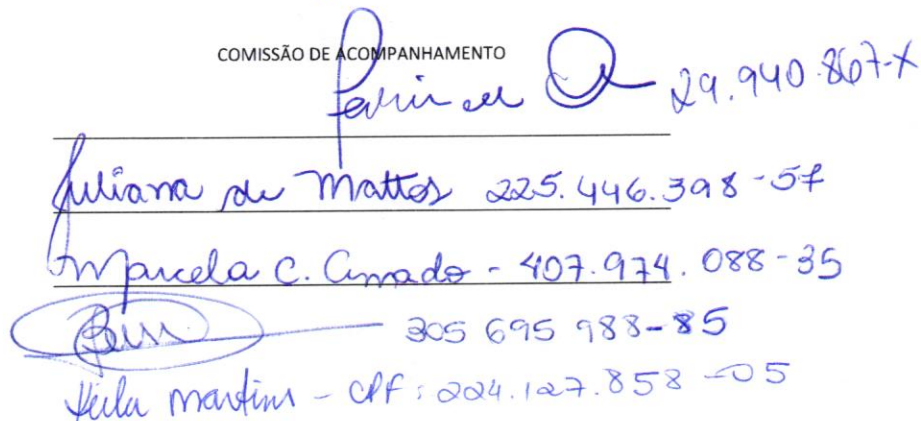 COMISSÃO DE ACOMPANHAMENTO
29.940.867-X
Juliana de Mattos 225.446.398-57
Marcela C. Amado - 407.974.088-35
305 695 988-85
Martins - CPF: 224.127.858-05